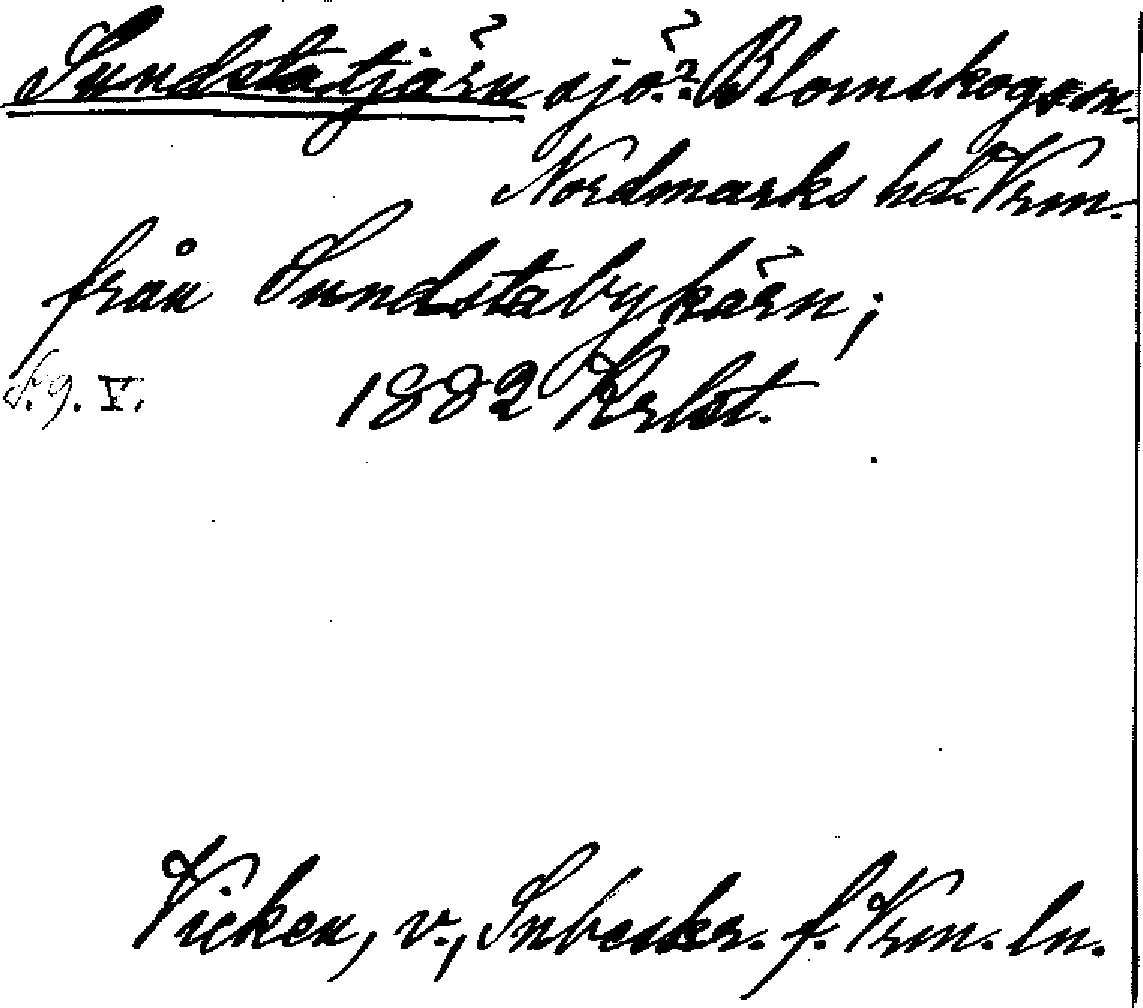 Sundstatjärn sjö? Blomskogs sn.
Nordmarks hd. Vrm.
från Sundstabykärn;
S. 9. V. 1882 Krlst.
Vicken, v., Snbeskr. f. Vrm. ln.